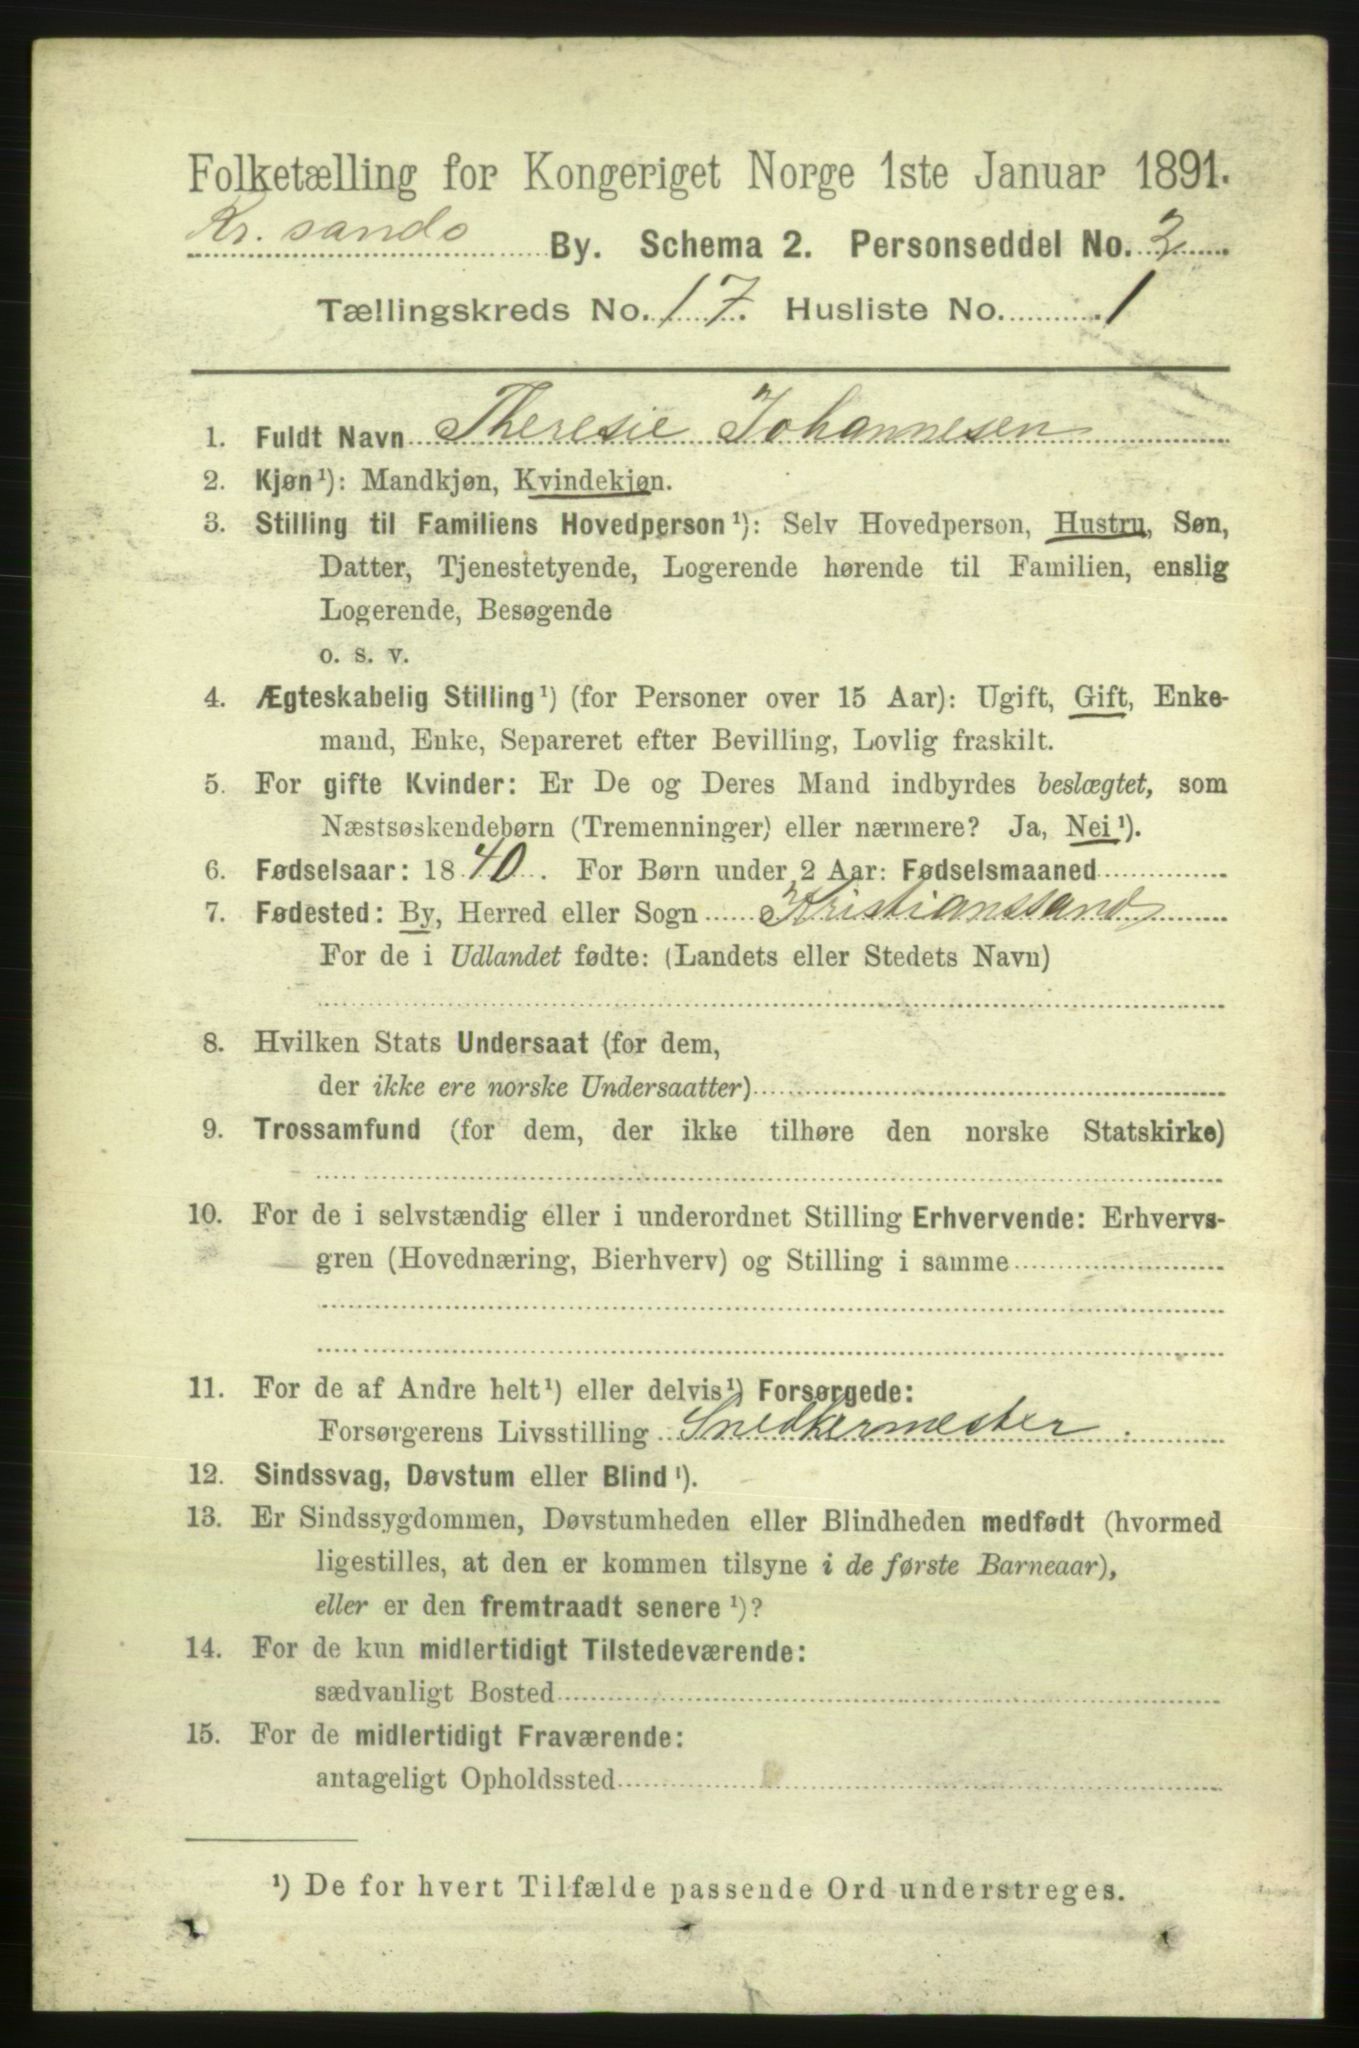 Folketælling for Kongeriget Norge 1ste Januar 1891.
Kr. sands By. Schema 2. Personseddel No. 2
Tællingskreds No. 17. Husliste No. 1
1. Fuldt Navn Theresie Johannesen
2. Kjøn¹): Mandkjøn, Kvindekjøn.
3. Stilling til Familiens Hovedperson¹): Selv Hovedperson, Hustru, Søn,
Datter, Tjenestetyende, Logerende hørende til Familien, enslig
Logerende, Besøgende
o. s. v.
4. Ægteskabelig Stilling¹) (for Personer over 15 Aar): Ugift, Gift, Enke-
mand, Enke, Separeret efter Bevilling, Lovlig fraskilt.
5. For gifte Kvinder: Er De og Deres Mand indbyrdes beslægtet, som
Næstsøskendebørn (Tremenninger) eller nærmere? Ja, Nei¹).
6. Fødselsaar: 1840. For Børn under 2 Aar: Fødselsmaaned
7. Fødested: By, Herred eller Sogn Kristianssand
For de i Udlandet fødte: (Landets eller Stedets Navn)
8. Hvilken Stats Undersaat (for dem,
der ikke ere norske Undersaatter)
9. Trossamfund (for dem, der ikke tilhøre den norske Statskirke)
10. For de i selvstændig eller i underordnet Stilling Erhvervende: Erhvervs-
gren (Hovednæring, Bierhverv) og Stilling i samme
11. For de af Andre helt¹) eller delvis¹) Forsørgede:
Forsørgerens Livsstilling Snedkermester.
12. Sindssvag, Døvstum eller Blind¹).
13. Er Sindssygdommen, Døvstumheden eller Blindheden medfødt (hvormed
ligestilles, at den er kommen tilsyne i de første Barneaar),
eller er den fremtraadt senere¹)?
14. For de kun midlertidigt Tilstedeværende:
sædvanligt Bosted
15. For de midlertidigt Fraværende:
antageligt Opholdssted
¹) De for hvert Tilfælde passende Ord understreges.